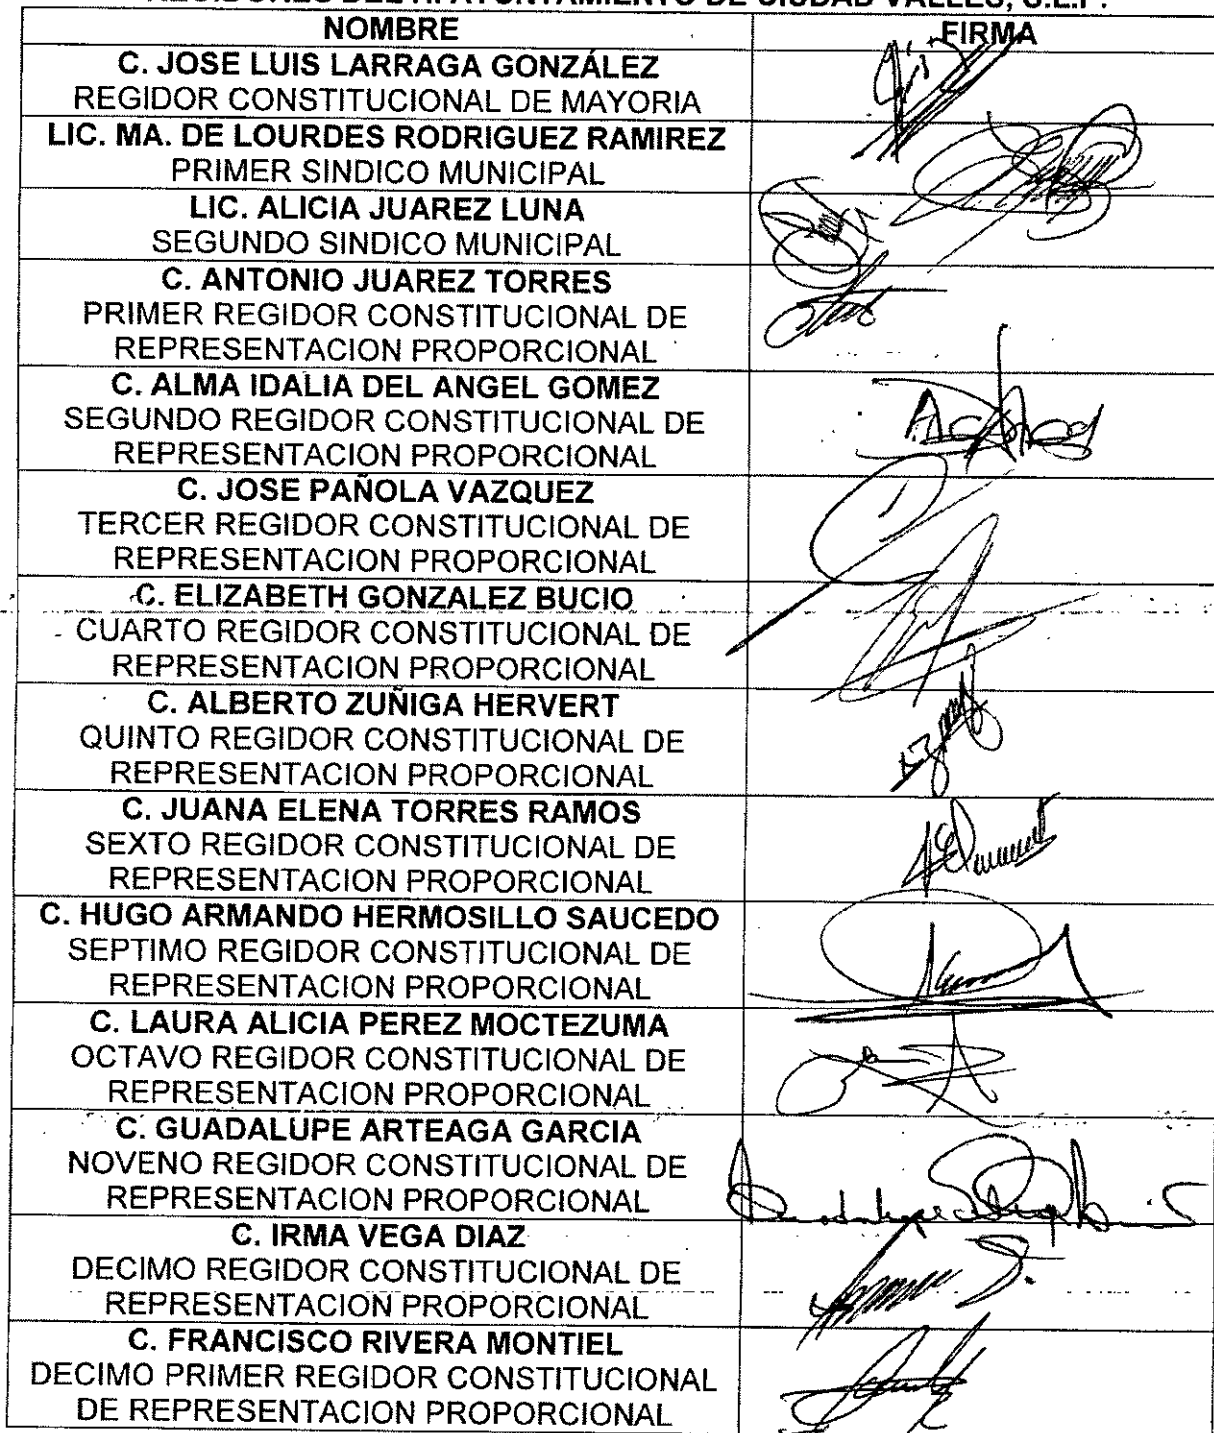 REGIDORES DEL H. AYUNTAMIENTO DE CIUDAD VALLES, S.L.P.
NOMBRE FIRMA
C. JOSE LUIS LARRAGA GONZÁLEZ
REGIDOR CONSTITUCIONAL DE MAYORIA
LIC. MA. DE LOURDES RODRIGUEZ RAMIREZ
PRIMER SINDICO MUNICIPAL
LIC. ALICIA JUAREZ LUNA
SEGUNDO SINDICO MUNICIPAL
C. ANTONIO JUAREZ TORRES
PRIMER REGIDOR CONSTITUCIONAL DE
REPRESENTACION PROPORCIONAL
C. ALMA IDALIA DEL ANGEL GOMEZ
SEGUNDO REGIDOR CONSTITUCIONAL DE
REPRESENTACION PROPORCIONAL
C. JOSE PAÑOLA VAZQUEZ
TERCER REGIDOR CONSTITUCIONAL DE
REPRESENTACION PROPORCIONAL
C. ELIZABETH GONZALEZ BUCIO
CUARTO REGIDOR CONSTITUCIONAL DE
REPRESENTACION PROPORCIONAL
C. ALBERTO ZUÑIGA HERVERT
QUINTO REGIDOR CONSTITUCIONAL DE
REPRESENTACION PROPORCIONAL
C. JUANA ELENA TORRES RAMOS
SEXTO REGIDOR CONSTITUCIONAL DE
REPRESENTACION PROPORCIONAL
C. HUGO ARMANDO HERMOSILLO SAUCEDO
SEPTIMO REGIDOR CONSTITUCIONAL DE
REPRESENTACION PROPORCIONAL
C. LAURA ALICIA PEREZ MOCTEZUMA
OCTAVO REGIDOR CONSTITUCIONAL DE
REPRESENTACION PROPORCIONAL
C. GUADALUPE ARTEAGA GARCIA
NOVENO REGIDOR CONSTITUCIONAL DE
REPRESENTACION PROPORCIONAL
C. IRMA VEGA DIAZ
DECIMO REGIDOR CONSTITUCIONAL DE
REPRESENTACION PROPORCIONAL
C. FRANCISCO RIVERA MONTIEL
DECIMO PRIMER REGIDOR CONSTITUCIONAL
DE REPRESENTACION PROPORCIONAL